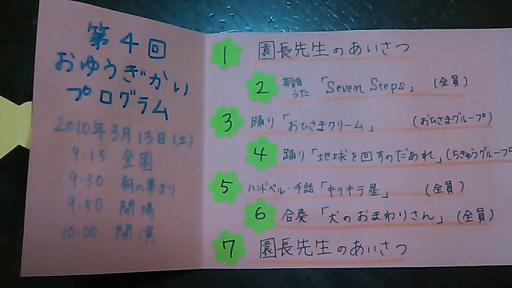 第4回
おゆうぎかい
プログラム
2010年3月13日(土)
9:15 登園
9:30 朝の集まり
9:50 開場
10:00 開演
1 園長先生のあいさつ
2 英語うた 「Seven Steps」 (全員)
3 踊り 「おひさまクリーム」 (おひさまグループ)
4 踊り 「地球を回すのだあれ」 (ちきゅうグループ)
5 ハンドベル・手話 「キラキラ星」 (全員)
6 合奏 「犬のおまわりさん」 (全員)
7 園長先生のあいさつ